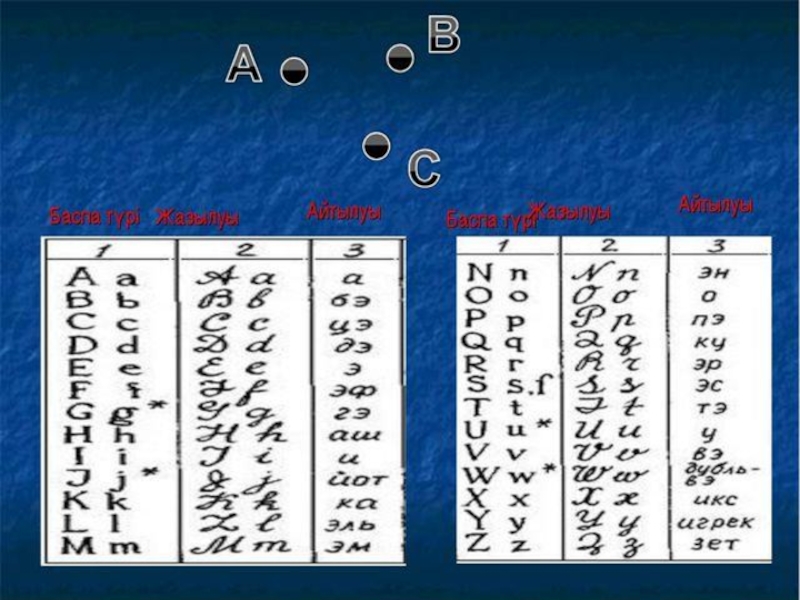 A
B
C
Баспа түрі Жазылуы Айтылуы
1 2 3
A a A a а
B b B b бэ
C c C c цэ
D d D d дэ
E e E e э
F f F f эф
G g * G g гэ
H h H h аш
I i I i и
J j * J j йот
K k K k ка
L l L l эль
M m M m эм
Баспа түрі Жазылуы Айтылуы
1 2 3
N n N n эн
O o O o о
P p P p пэ
Q q Q q ку
R r R r эр
S s.ſ S s эс
T t T t тэ
U u * U u у
V v V v вэ
W w * W w дубль-вэ
X x X x икс
Y y Y y игрек
Z z Z z зет